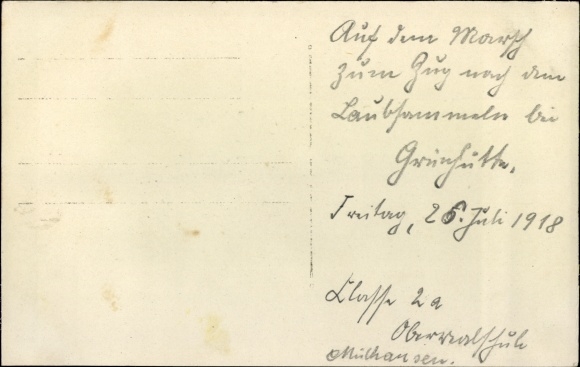 Auf dem Marsch
zum Zug nach dem
Laubsammeln bei
Grünhütte.
Freitag, 26. Juli 1918
Classe 2a
Oberrealschule
Mülhausen.